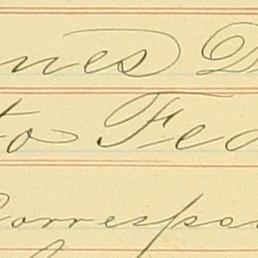 nes D
to Fed
Correspon